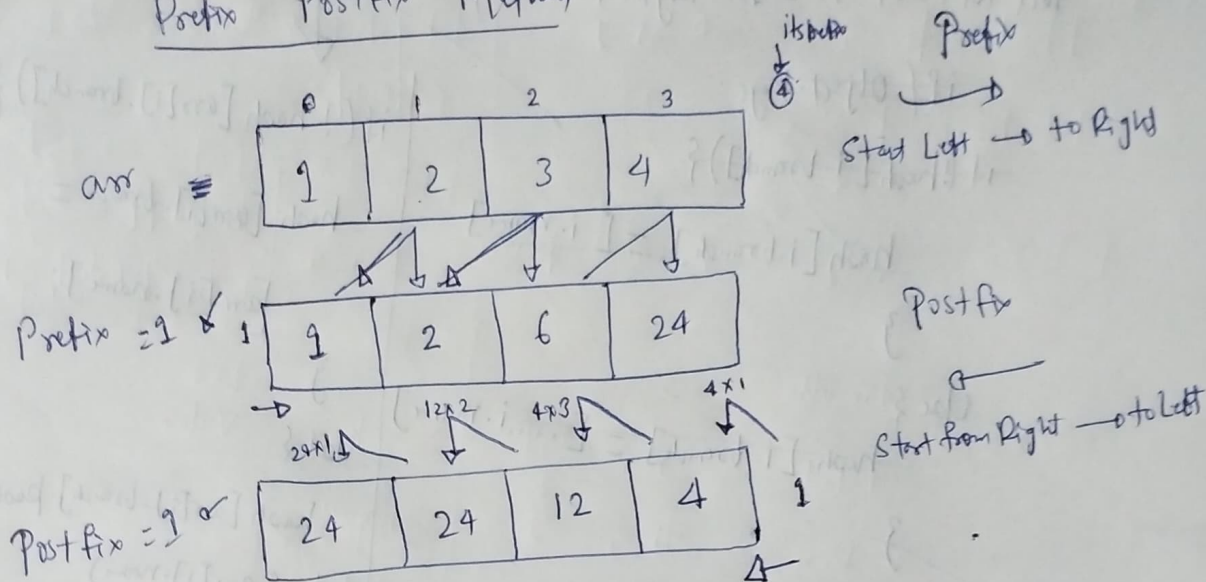 Prefix Postfix
Prefix
④
Start Left → to Right
0 1 2 3
arr = 1 2 3 4
Prefix = 1 1 1 2 6 24
Postfix
Start from Right → to Left
24×1 12×2 4×3 4×1
Postfix = 1 24 24 12 4 1